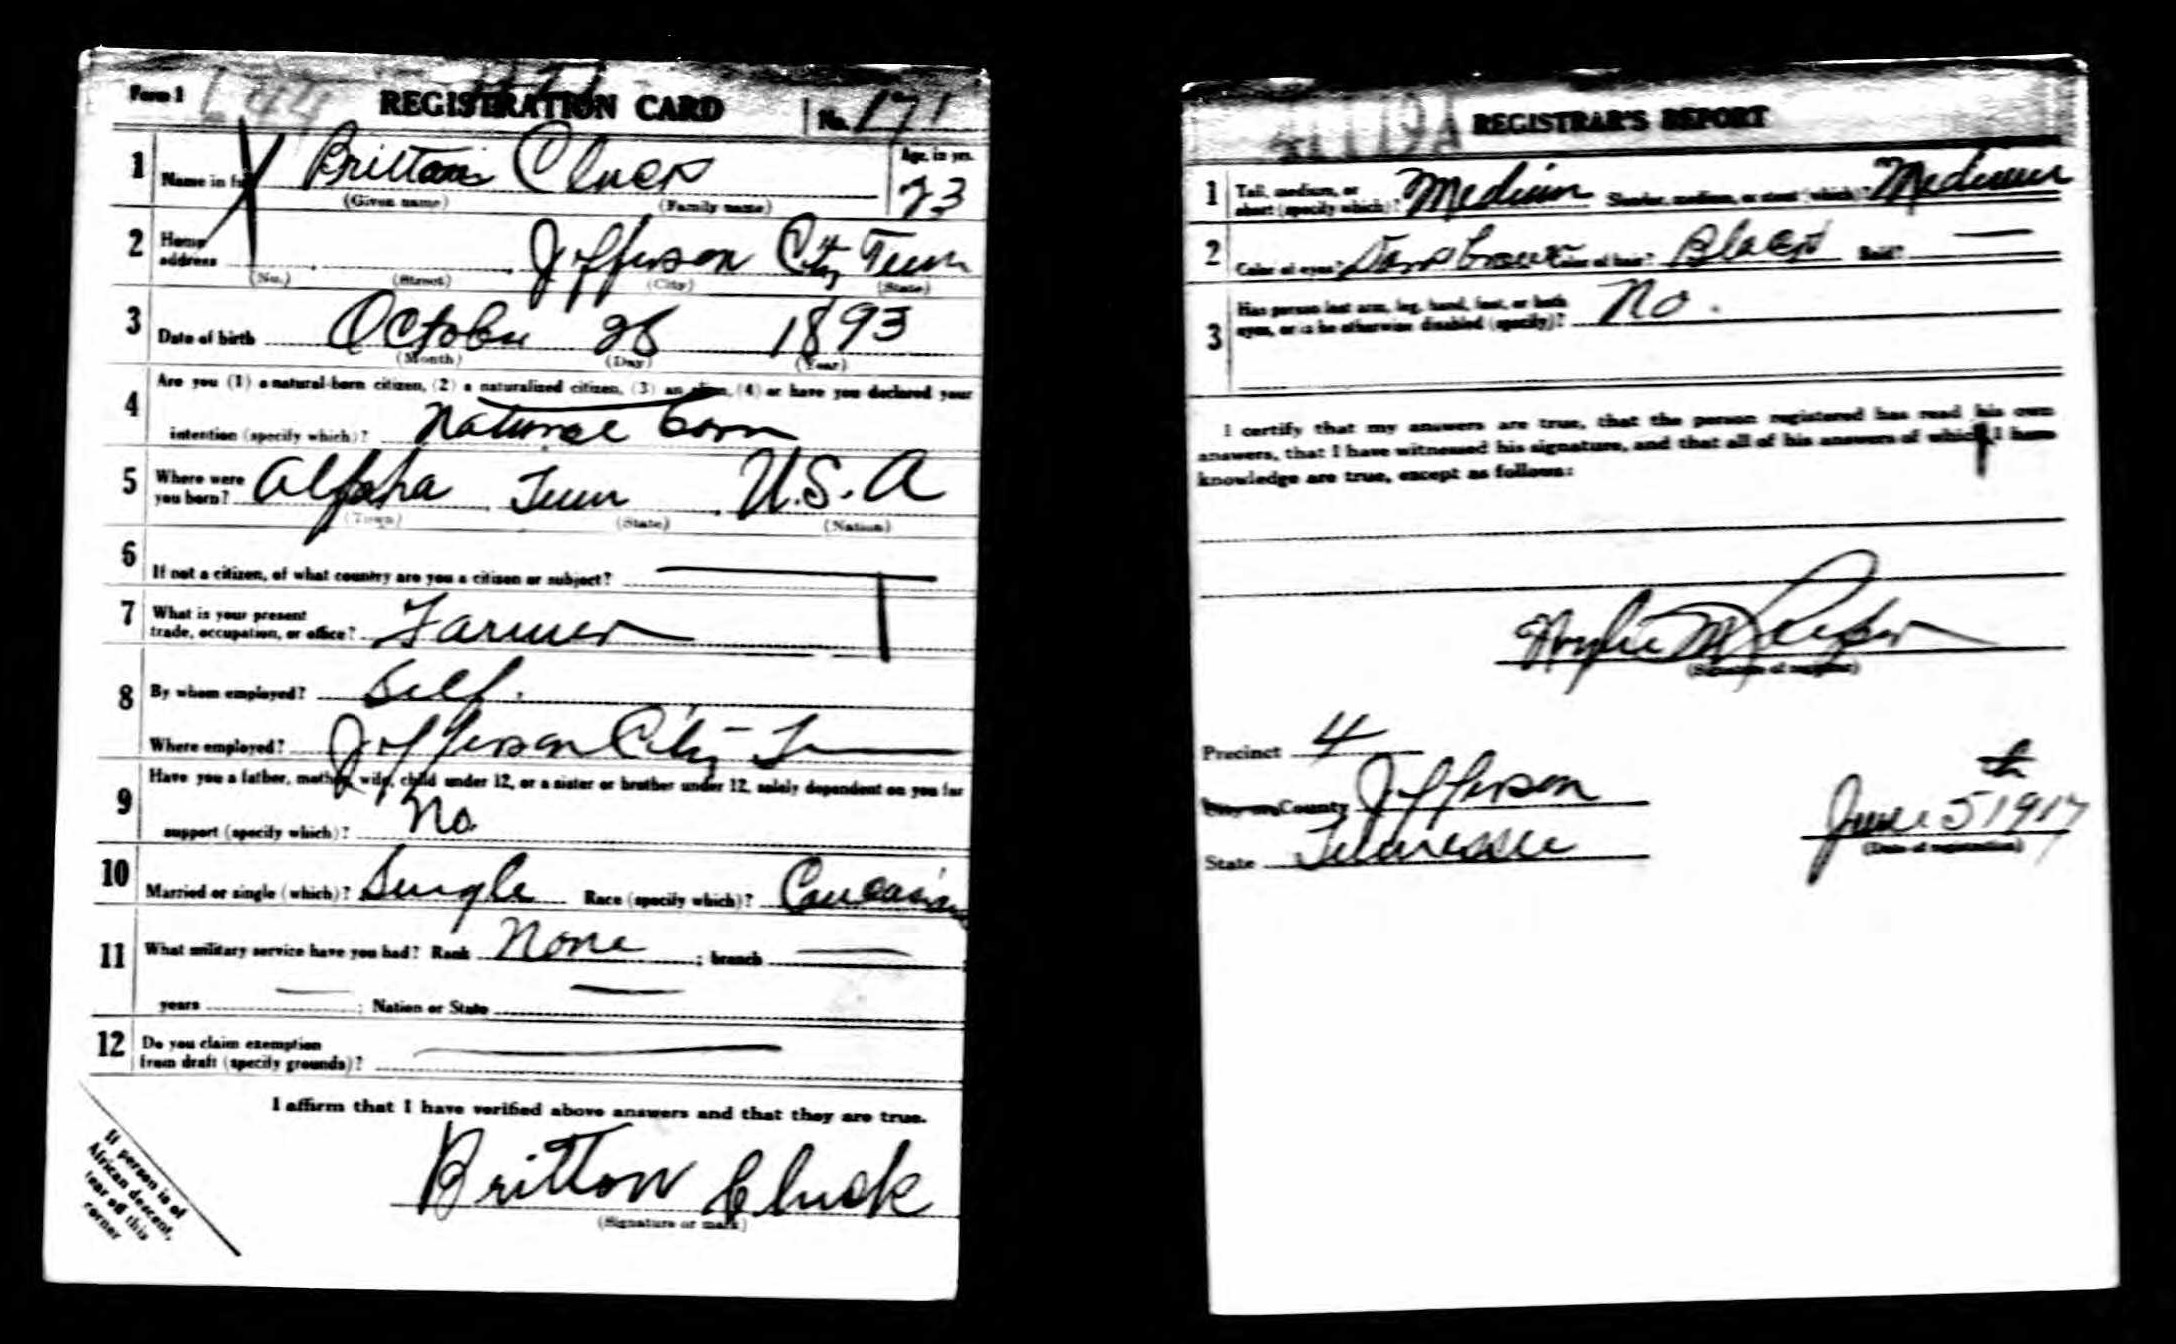 Form 1 REGISTRATION CARD No. 171
1 Name in full Brittain Cluck Age, in yrs. 23
(Given name) (Family name)
2 Home address Jefferson City Tenn
(No.) (Street) (City) (State)
3 Date of birth October 28 1893
(Month) (Day) (Year)
4 Are you (1) a natural-born citizen, (2) a naturalized citizen, (3) an alien, (4) or have you declared your
intention (specify which)? Natural born
5 Where were you born? Alpha Tenn U.S.A
(Town) (State) (Nation)
6 If not a citizen, of what country are you a citizen or subject?
7 What is your present
trade, occupation, or office? Farmer
8 By whom employed? Self.
Where employed? Jefferson City T
9 Have you a father, mother, wife, child under 12, or a sister or brother under 12, solely dependent on you for
support (specify which)? No
10 Married or single (which)? Single Race (specify which)? Caucasian
11 What military service have you had? Rank None ; branch
years ; Nation or State
12 Do you claim exemption
from draft (specify grounds)?
I affirm that I have verified above answers and that they are true.
Britton Cluck
(Signature or mark)
If person is of
African descent,
tear off this
corner
REGISTRAR'S REPORT
1 Tall, medium, or
short (specify which)? Medium Slender, medium, or stout (which)? Medium
2 Color of eyes? Dark brown Color of hair? Black Bald?
3 Has person lost arm, leg, hand, foot, or both
eyes, or is he otherwise disabled (specify)? No.
I certify that my answers are true, that the person registered has read his own
answers, that I have witnessed his signature, and that all of his answers of which I have
knowledge are true, except as follows:
(Signature of registrar)
Precinct 4
City or County Jefferson
State Tennessee
June 5th 1917
(Date of registration)